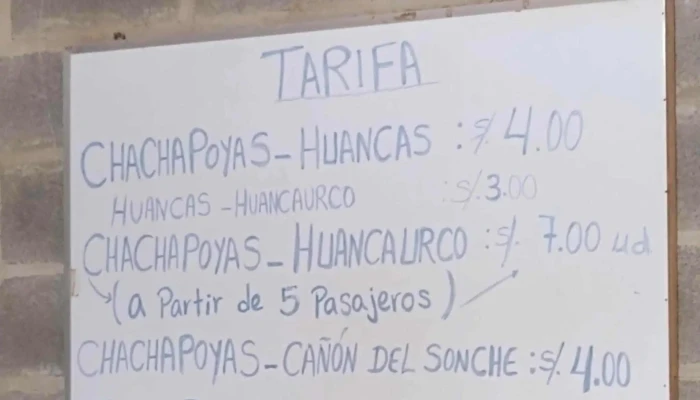 TARIFA
CHACHAPOYAS - HUANCAS : S/. 4.00
HUANCAS - HUANCAURCO : S/. 3.00
CHACHAPOYAS - HUANCAURCO : S/. 7.00 ud
(a Partir de 5 Pasajeros)
CHACHAPOYAS - CAÑÓN DEL SONCHE : S/. 4.00